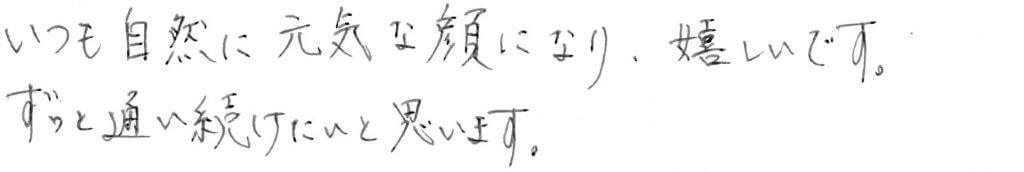 いつも自然に元気な顔になり、嬉しいです。
ずっと通い続けたいと思います。